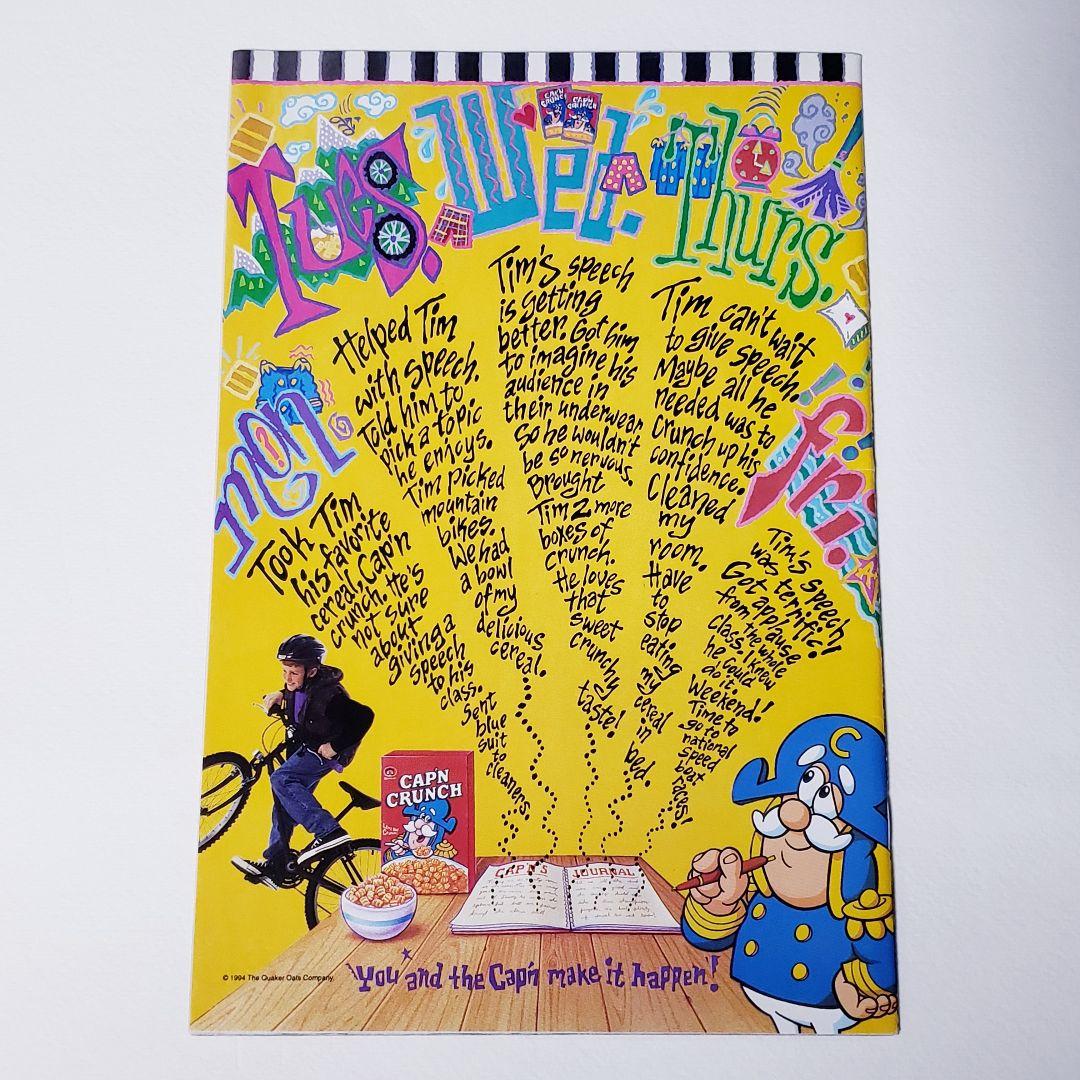 Mon.
Took Tim
his favorite
cereal, Cap'n
crunch. He's
not sure
about
giving a
speech
to his
class.
Sent
blue
suit
to
cleaners.
Tues.
Helped Tim
with speech.
Told him to
pick a topic
he enjoys.
Tim picked
mountain
bikes.
We had
a bowl
of my
delicious
cereal.
Wed.
Tim's speech
is getting
better. Got him
to imagine his
audience in
their underwear
So he wouldn't
be so nervous.
Brought
Tim 2 more
boxes of
crunch.
He loves
that
sweet
crunchy
taste!
Thurs.
Tim can't wait
to give speech.
Maybe all he
needed was to
Crunch up his
confidence.
Cleaned
my
room.
Have
to
stop
eating
my
cereal
in
bed.
fri.
Tim's speech
was terrific!
Got applause
from the whole
class. I knew
he could
do it.
Weekend!
Time to
go to
national
speed
boat
races!
CAP'N
CRUNCH
CAP'N
CRUNCH
CAP'N
CRUNCH
C
CAP'N'S JOURNAL
© 1994 The Quaker Oats Company.
You and the Cap'n make it happen!